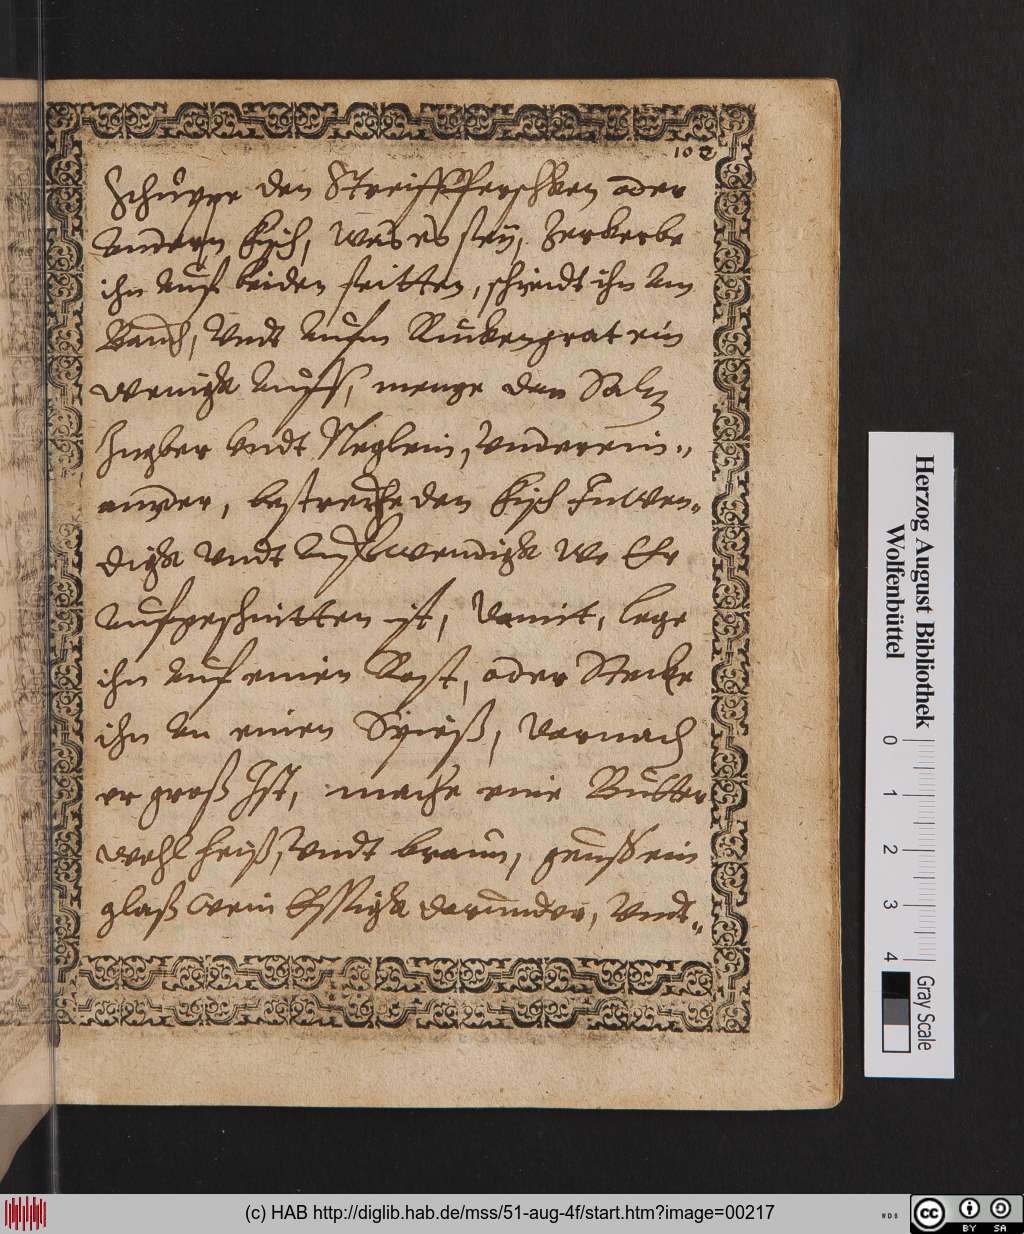 102
Schüppe den Streiffpferschken oder
andern Fisch, was es seÿ, Zerkerbe
ihn auf beiden seitten, schneidt ihn am
Bauch, Undt aufm Ruckengrat ein
wenigk auff, menge den Saltz
Ingber vndt Neglein, Underein-
annder, bestreiche den Fisch Inwen-
digk vndt außwendigk wo Ehr
aufgeschnitten ist, damit, lege
ihn auf einen Rost, oder Stecke
ihn an einen Spieß, darnach
er groß Ist, mache eine Butter
wohl heiß, vndt braun, geuß ein
glaß wein Essigk darunder, Undt
Herzog August Bibliothek
Wolfenbüttel
0 1 2 3 4
Gray Scale
(c) HAB http://diglib.hab.de/mss/51-aug-4f/start.htm?image=00217
WDB
cc BY SA